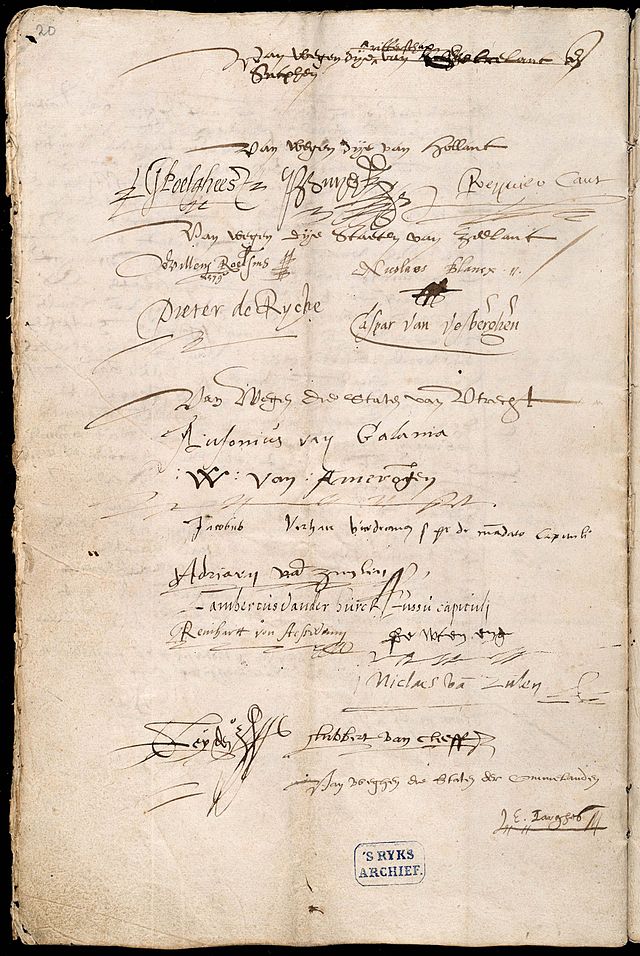 20
Van wegen dye van
Zutphen
Van wegen dye van Hollant
GPoelgheest PBuys Reynier Cant
Van wegen dye Staeten van Zeelant
Willem Roelsius Nicolaes Blancx
Pieter de Rycke Caspar van Vosberghen
Van Wegen die Staten van Utrecht
Ausonius van Galama
W: van: Amerongen
Jacobus Verhaer de mandato Capituli
Adriaen van Zuylen
Lambertus vander burch iussu capituli
Reinhart von
Niclaes van Zulen
Leyden Lubbert van Cleeff
Van weggen die Staten der Ommelanden
E. Jarghes
'S RYKS
ARCHIEF.